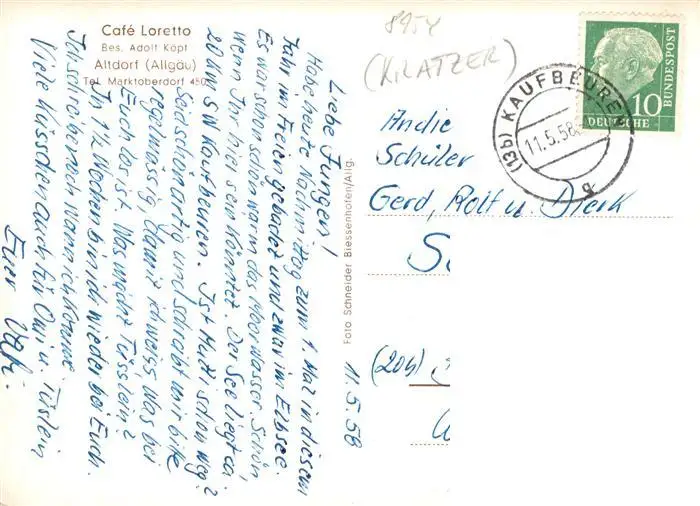 Café Loretto
Bes. Adolf Köpf
Altdorf (Allgäu)
Tel. Marktoberdorf 450
11.5.58
Liebe Jungen!
Habe heute Nachmittag zum 1. Mal in diesem
Jahr im Freien gebadet und zwar im Elbsee.
Es war schon schön warm das Moorwasser. Schön,
wenn Ihr hier sein könntet. Der See liegt ca.
20 km SW Kaufbeuren. Ist Mutti schon weg?
Seid schön artig und schreibt mir bitte
regelmässig, damit ich weiss was bei
Euch los ist. Was macht Füsslein?
In 1½ Wochen bin ich wieder bei Euch.
Ich schreibe noch wann ich komme.
Viele Küsschen auch für Omi u.
Euer Vati.
Foto Schneider Biessenhofen/Allg.
8954
(KRATZER)
(13b) KAUFBEUREN
11.5.58
b
10
DEUTSCHE
BUNDESPOST
An die
Schüler
Gerd, Rolf u. Dierk
(20b)